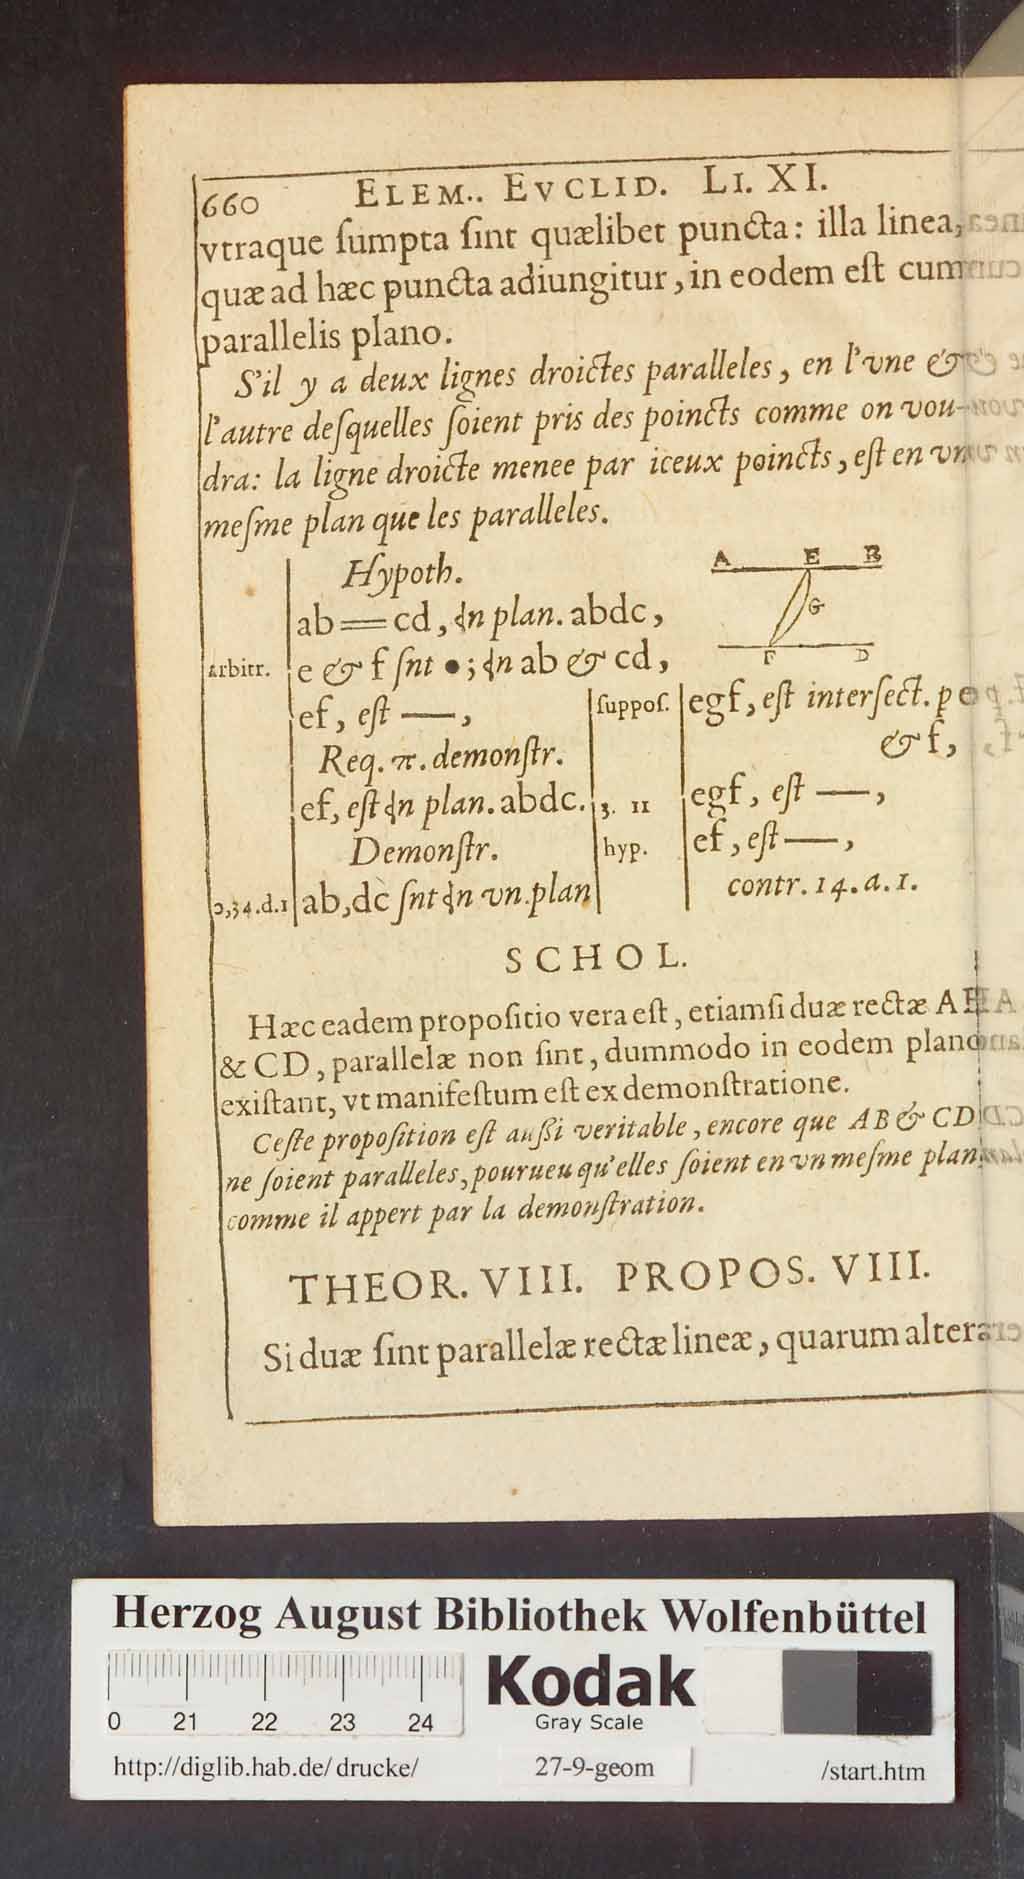 660 ELEM.. EVCLID. LI. XI.
vtraque ſumpta ſint quælibet puncta: illa linea,
quæ ad hæc puncta adiungitur, in eodem eſt cum
parallelis plano.
S'il y a deux lignes droictes paralleles, en l'vne &
l'autre deſquelles ſoient pris des poincts comme on vou-
dra: la ligne droicte menee par iceux poincts, eſt en vn
meſme plan que les paralleles.
A E B
G
F D
Hypoth.
ab == cd, in plan. abdc,
arbitr. e & f ſnt •; in ab & cd,
ef, eſt —,
Req. π. demonſtr.
ef, eſt in plan. abdc.
Demonſtr.
34.d.1 ab, dc ſnt in vn. plan
ſuppoſ. egf, eſt interſect. p e
& f,
3. 11 egf, eſt —,
hyp. ef, eſt —,
contr. 14. a. 1.
SCHOL.
Hæc eadem propoſitio vera eſt, etiamſi duæ rectæ AB
& CD, parallelæ non ſint, dummodo in eodem plano
exiſtant, vt manifeſtum eſt ex demonſtratione.
Ceſte propoſition eſt auſſi veritable, encore que AB & CD
ne ſoient paralleles, pourueu qu'elles ſoient en vn meſme plan
comme il appert par la demonſtration.
THEOR. VIII. PROPOS. VIII.
Si duæ ſint parallelæ rectæ lineæ, quarum altera
Herzog August Bibliothek Wolfenbüttel
0 21 22 23 24
Kodak
Gray Scale
http://diglib.hab.de/drucke/ 27-9-geom /start.htm